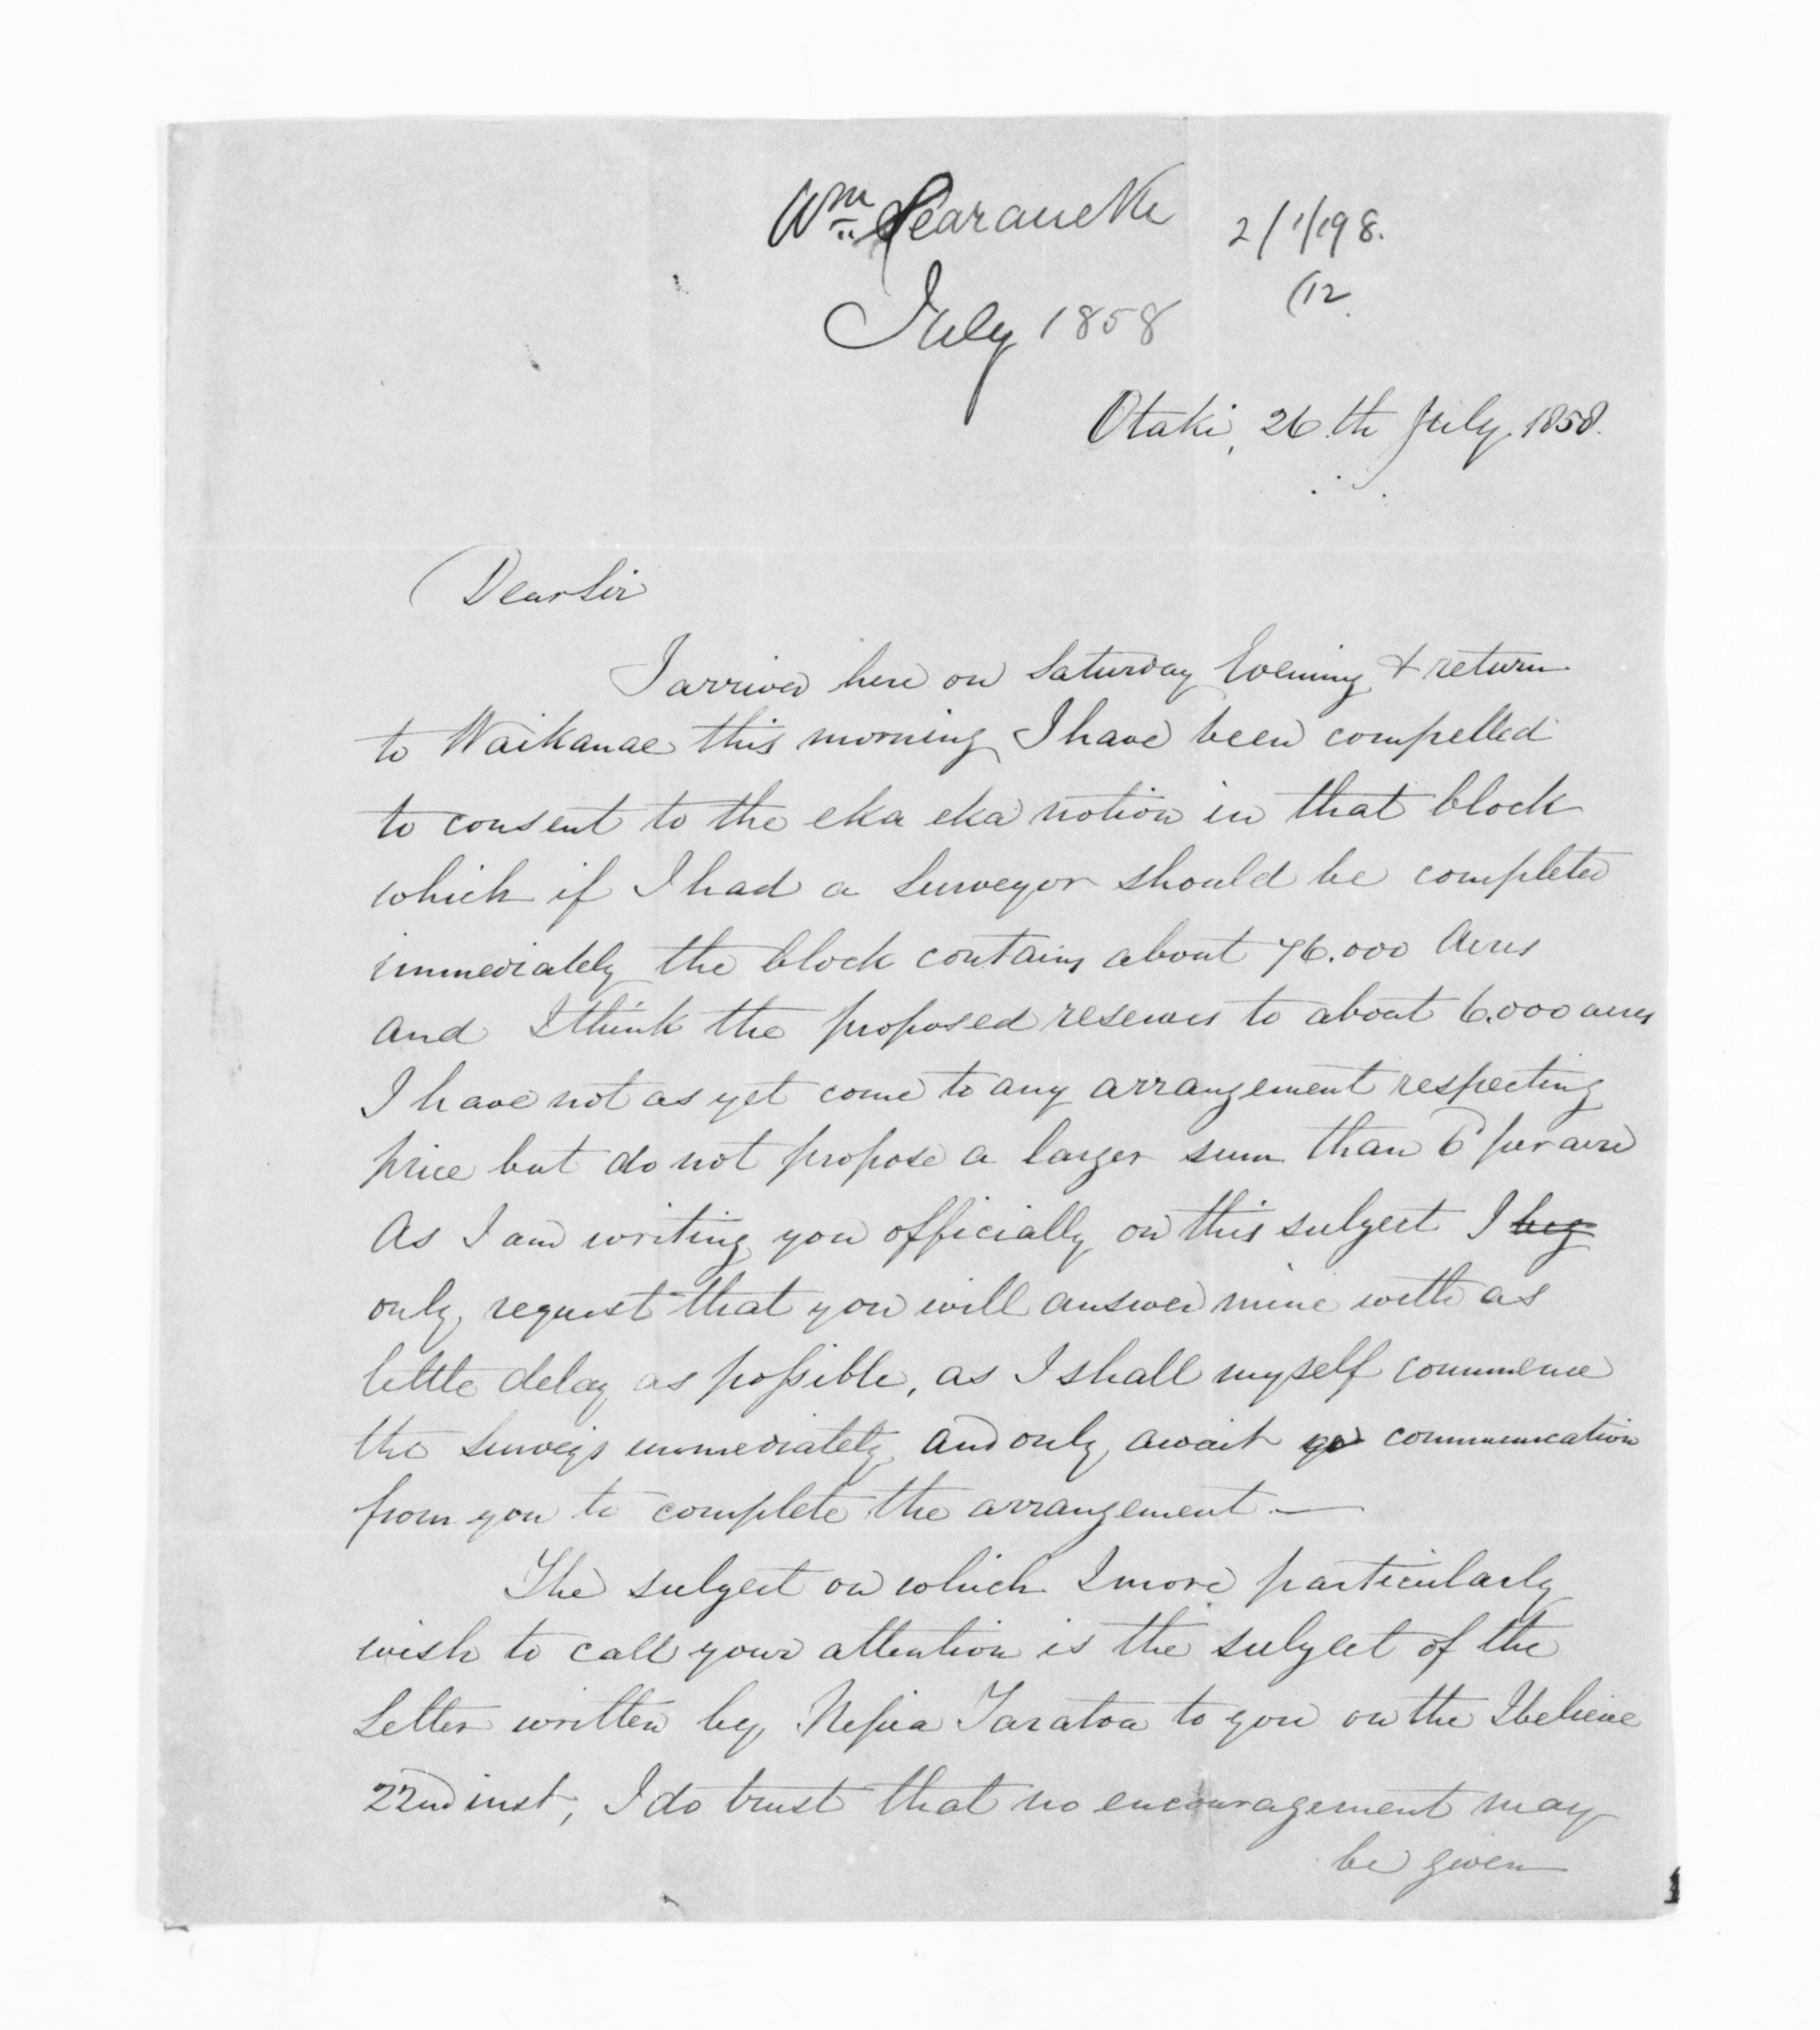 Wm Searancke
2/1/198.
(12.
July 1858
Otaki, 26th July, 1858.
Dear Sir
I arrived here on Saturday Evening & return
to Waikanae this morning I have been compelled
to consent to the eka eka notion in that block
which if I had a Surveyor should be completed
immediately the block contains about 76.000 Acres
and I think the proposed reserves to about 6.000 acres
I have not as yet come to any arrangement respecting
price but do not propose a larger sum than 6d per acre
As I am writing you officially on this subject I beg
only, request that you will answer mine with as
little delay as possible, as I shall myself commence
the Surveys immediately and only await yo communication
from you to complete the arrangement. —
The subject on which I more particularly
wish to call your attention is the subject of the
Letter written by Nepia Taratoa to you on the I believe
22nd inst, I do trust that no encouragement may
be given